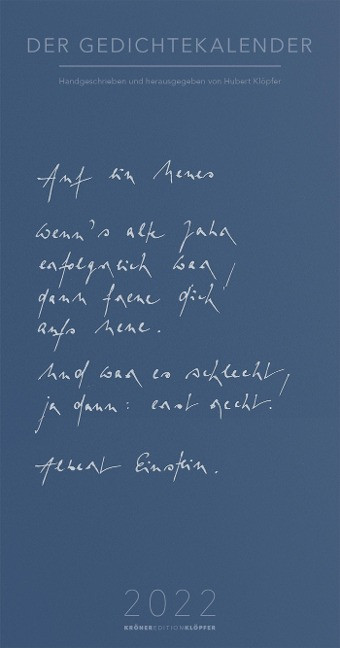 DER GEDICHTEKALENDER
Handgeschrieben und herausgegeben von Hubert Klöpfer
Auf ein Neues
wenn's alte Jahr
erfolgreich war,
dann freue dich
aufs neue.
Und war es schlecht,
ja dann: erst recht!
Albert Einstein.
2022
KRÖNEREDITIONKLÖPFER